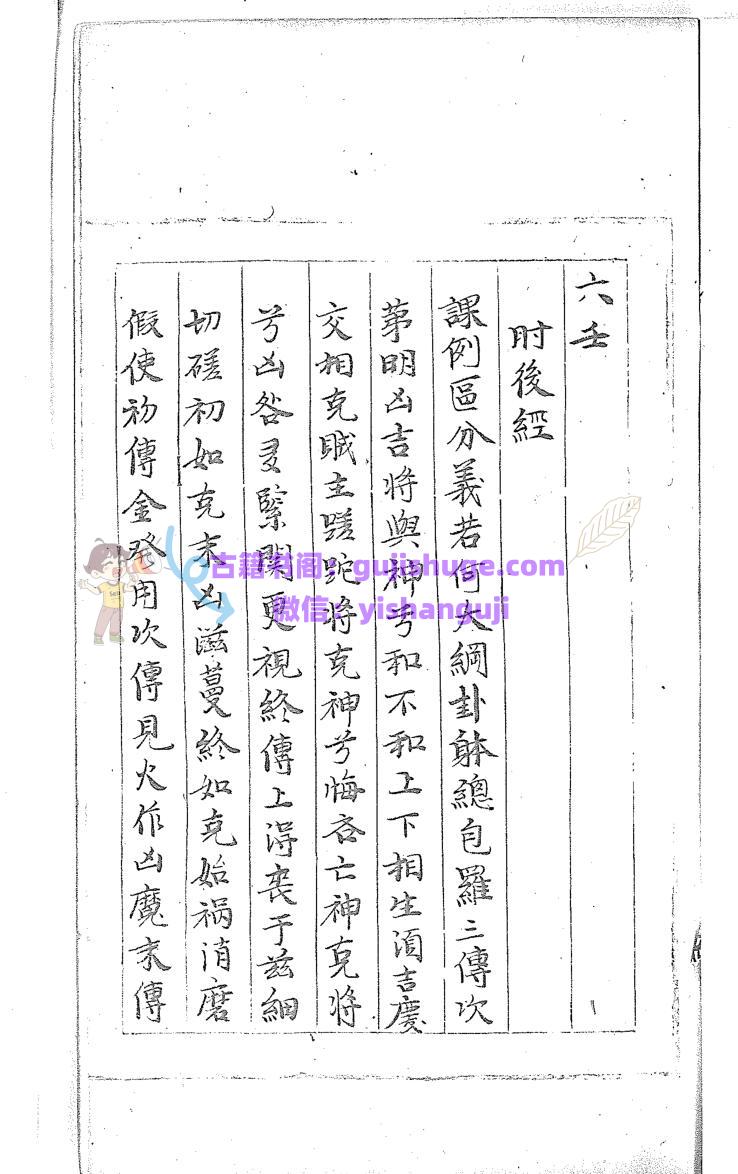 六壬
肘後經
課例區分義若何大綱卦躰總包羅三傳次
第明凶吉將與神兮和不和上下相生須吉慶
交相克賊主蹉跎將克神兮悔吝亡神克將
兮凶咎多緊関更視終傳上得丧于兹細
切磋初如克末凶滋蔓終如克始禍消磨
假使初傳金發用次傳見火作凶魔末傳
古籍书阁：gujishuge.com
微信：yishanguji